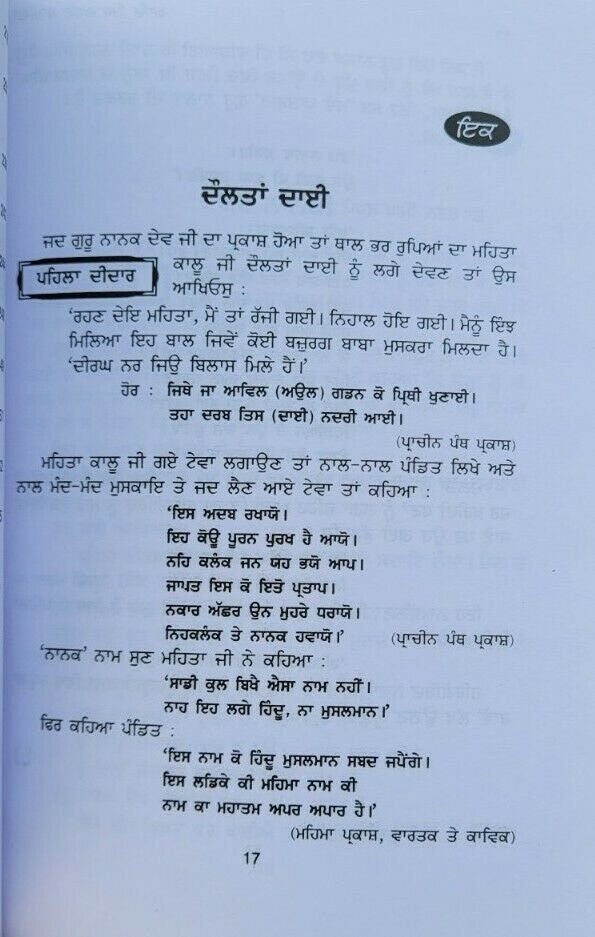 ਇਕ
ਦੌਲਤਾਂ ਦਾਈ
ਜਦ ਗੁਰੂ ਨਾਨਕ ਦੇਵ ਜੀ ਦਾ ਪ੍ਰਕਾਸ਼ ਹੋਆ ਤਾਂ ਥਾਲ ਭਰ ਰੁਪਿਆਂ ਦਾ ਮਹਿਤਾ
ਪਹਿਲਾ ਦੀਦਾਰ
ਕਾਲੂ ਜੀ ਦੌਲਤਾਂ ਦਾਈ ਨੂੰ ਲਗੇ ਦੇਵਣ ਤਾਂ ਉਸ
ਆਖਿਓਸੁ :
'ਰਹਣ ਦੇਇ ਮਹਿਤਾ, ਮੈਂ ਤਾਂ ਰੱਜੀ ਗਈ। ਨਿਹਾਲ ਹੋਇ ਗਈ। ਮੈਨੂੰ ਇੰਝ
ਮਿਲਿਆ ਇਹ ਬਾਲ ਜਿਵੇਂ ਕੋਈ ਬਜ਼ੁਰਗ ਬਾਬਾ ਮੁਸਕਰਾ ਮਿਲਦਾ ਹੈ।
'ਦੀਰਘ ਨਰ ਜਿਉ ਬਿਲਾਸ ਮਿਲੇ ਹੈਂ।'
ਹੋਰ : ਜਿਥੇ ਜਾ ਆਵਿਲ (ਅਉਲ) ਗਡਨ ਕੋ ਪ੍ਰਿਥੀ ਖੁਣਾਈ।
ਤਹਾ ਦਰਬ ਤਿਸ (ਦਾਈ) ਨਦਰੀ ਆਈ।
(ਪ੍ਰਾਚੀਨ ਪੰਥ ਪ੍ਰਕਾਸ਼)
ਮਹਿਤਾ ਕਾਲੂ ਜੀ ਗਏ ਟੇਵਾ ਲਗਾਉਣ ਤਾਂ ਨਾਲ-ਨਾਲ ਪੰਡਿਤ ਲਿਖੇ ਅਤੇ
ਨਾਲ ਮੰਦ-ਮੰਦ ਮੁਸਕਾਇ ਤੇ ਜਦ ਲੈਣ ਆਏ ਟੇਵਾ ਤਾਂ ਕਹਿਆ :
'ਇਸ ਅਦਬ ਰਖਾਯੋ।
ਇਹ ਕੋਊ ਪੂਰਨ ਪੁਰਖ ਹੈ ਆਯੋ।
ਨਹਿ ਕਲੰਕ ਜਨ ਯਹ ਭਯੋ ਆਪ।
ਜਾਪਤ ਇਸ ਕੋ ਇਤੋ ਪ੍ਰਤਾਪ।
ਨਕਾਰ ਅੱਛਰ ਉਨ ਮੁਹਰੇ ਧਰਾਯੋ।
ਨਿਹਕਲੰਕ ਤੇ ਨਾਨਕ ਹਵਾਯੋ।' (ਪ੍ਰਾਚੀਨ ਪੰਥ ਪ੍ਰਕਾਸ਼)
'ਨਾਨਕ' ਨਾਮ ਸੁਣ ਮਹਿਤਾ ਜੀ ਨੇ ਕਹਿਆ :
'ਸਾਡੀ ਕੁਲ ਬਿਖੈ ਐਸਾ ਨਾਮ ਨਹੀਂ।
ਨਾਹ ਇਹ ਲਗੇ ਹਿੰਦੂ, ਨਾ ਮੁਸਲਮਾਨ।'
ਫਿਰ ਕਹਿਆ ਪੰਡਿਤ :
'ਇਸ ਨਾਮ ਕੋ ਹਿੰਦੂ ਮੁਸਲਮਾਨ ਸਬਦ ਜਪੈਂਗੇ।
ਇਸ ਲਡਿਕੇ ਕੀ ਮਹਿਮਾ ਨਾਮ ਕੀ
ਨਾਮ ਕਾ ਮਹਾਤਮ ਅਪਰ ਅਪਾਰ ਹੈ।'
(ਮਹਿਮਾ ਪ੍ਰਕਾਸ਼, ਵਾਰਤਕ ਤੇ ਕਾਵਿਕ)
17